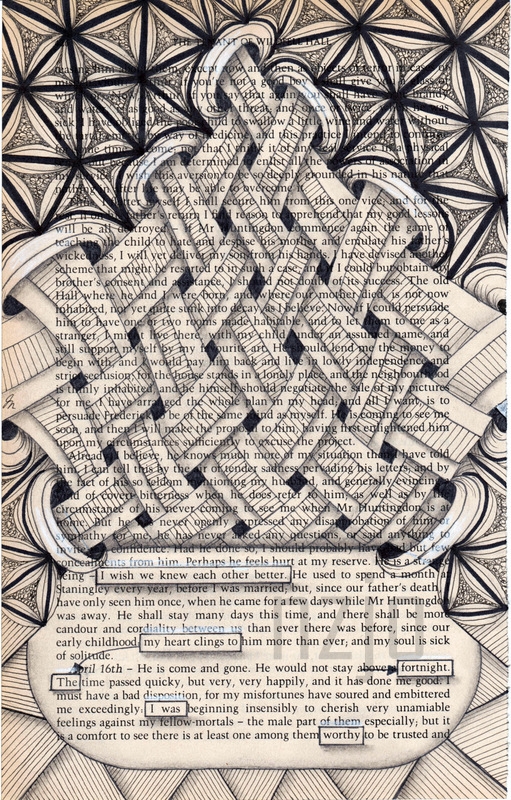 THE TENANT OF WILDFELL HALL
him them, except now and then as objects of terror in cases of
if you're not a good boy shall give you a glass of
say that again you shall have brandy
and water was good as other threat, and once or twice, when he was
sick I have obliged the poor child to swallow a little wine and water without
the tartar emetic by way of medicine, and this practice I intend to continue
for some time to come, not that I think it of any real service in a physical
but because I am determined to enlist all the powers of association in
my service I wish this aversion to be deeply grounded in his nature that
nothing in after life may be able to overcome it.
Thus, I flatter myself, I shall secure him from this one vice, and for the
rest, if on his father's return I have reason to apprehend that my good lessons
will be all destroyed if Mr Huntingdon commence again the game of
teaching the child to hate and despise his mother and emulate his father's
wickedness, I will yet deliver my son from his hands. I have devised another
scheme that might be resorted to in such a case, and if I could but obtain my
brother's consent and assistance, I should not doubt of its success. The old
Hall where he and I were born, and where our mother died, is not now
inhabited, nor yet quite sunk into decay as I believe. Now if I could persuade
him to have one or two rooms made habitable, and to let them to me as a
stranger, I might live there, with my child under an assumed name, and
still support myself by my favourite art. He should lend me the money to
begin with, and I would pay him back, and live in lowly independence and
strict seclusion, for the house stands in a lonely place, and the neighbourhood
is thinly inhabited, and he himself should negotiate the sale of my pictures
for me. I have arranged the whole plan in my head, and all I want, is to
persuade Frederick to be of the same mind as myself. He is coming to see me
soon, and then I will make the proposal to him, having first enlightened him
upon my circumstances sufficiently to excuse the project.
Already, I believe, he knows much more of my situation than I have told
him. I can tell this by the air of tender sadness pervading his letters; and by
the fact of his so seldom mentioning my husband, and generally evincing a
kind of covert bitterness when he does refer to him, as well as by the
circumstance of his never coming to see me when Mr Huntingdon is at
home. But he has never openly expressed any disapprobation of him or
sympathy for me, he has never asked any questions, or said anything to
invite my confidence. Had he done so, I should probably have had but few
concealments from him. Perhaps he feels hurt at my reserve. He is a strange
being – I wish we knew each other better. He used to spend a month at
Staningley every year, before I was married, but, since our father's death,
I have only seen him once, when he came for a few days while Mr Huntingdon
was away. He shall stay many days this time, and there shall be more
candour and cordiality between us than ever there was before, since our
early childhood; my heart clings to him more than ever; and my soul is sick
of solitude.
April 16th – He is come and gone. He would not stay above a fortnight.
The time passed quicky, but very, very happily, and it has done me good. I
must have a bad disposition, for my misfortunes have soured and embittered
me exceedingly: I was beginning insensibly to cherish very unamiable
feelings against my fellow-mortals – the male part of them especially; but it
is a comfort to see there is at least one among them worthy to be trusted and